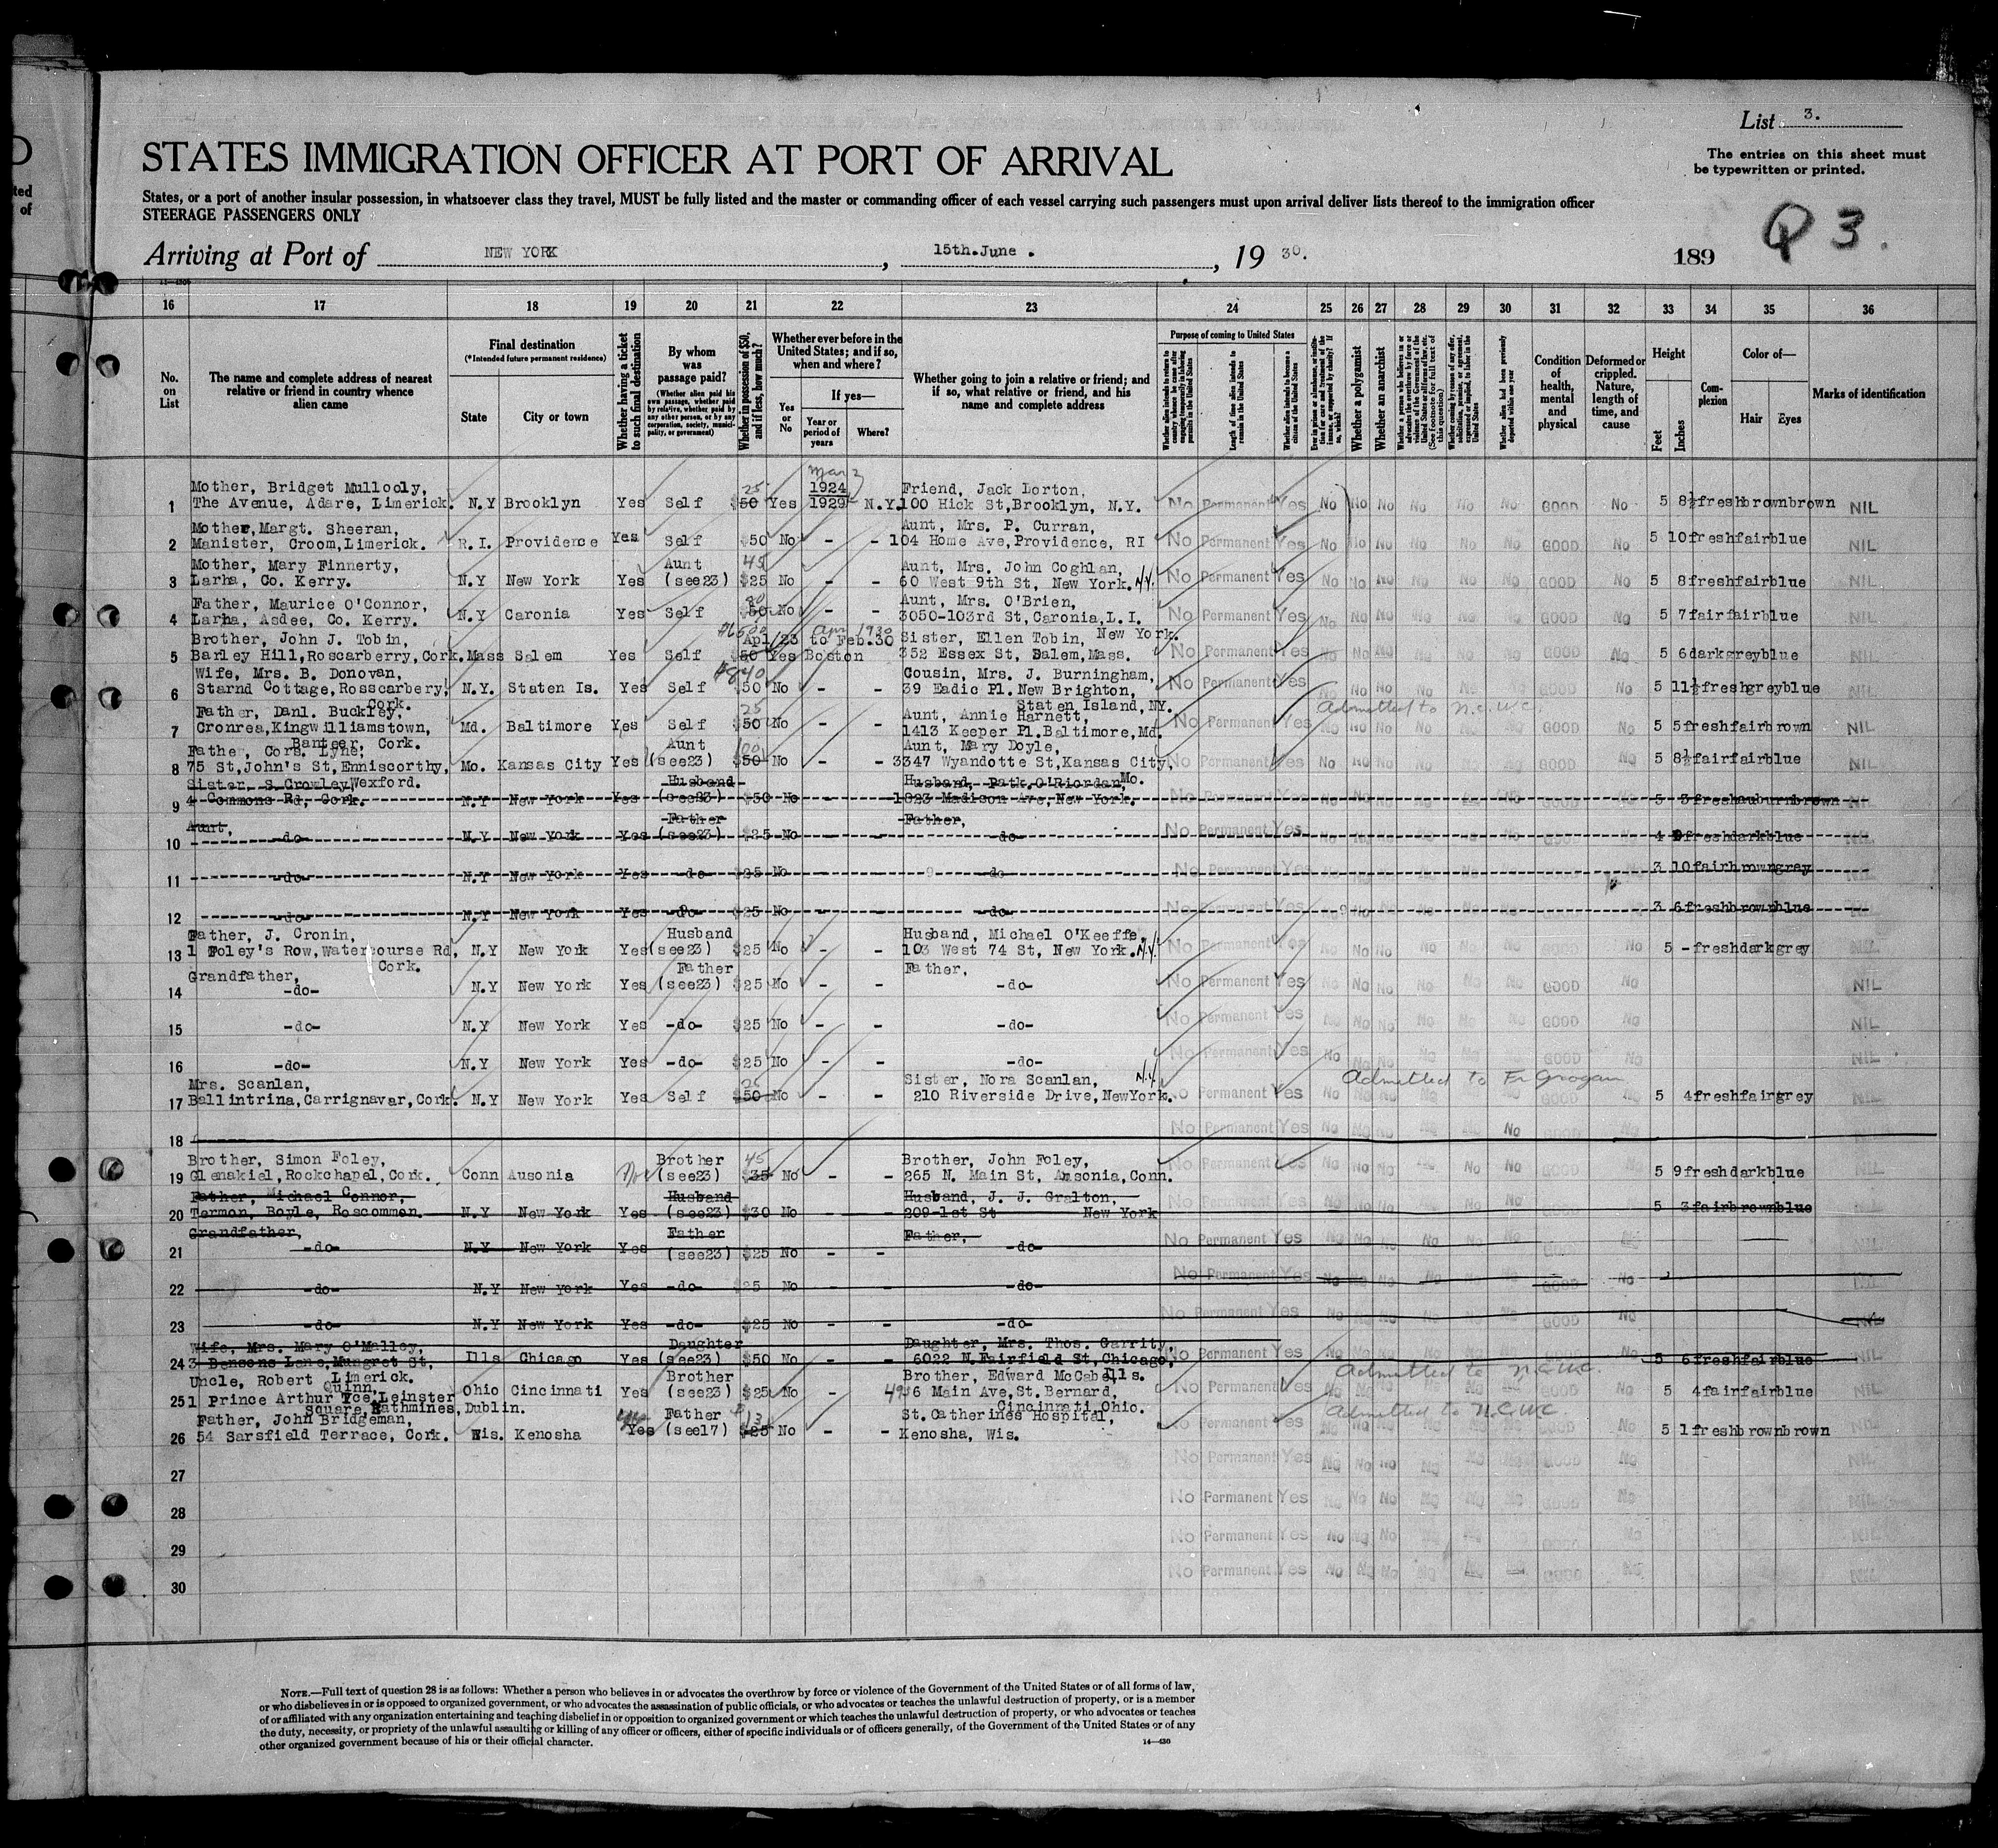 List 3.
STATES IMMIGRATION OFFICER AT PORT OF ARRIVAL
The entries on this sheet must
be typewritten or printed.
States, or a port of another insular possession, in whatsoever class they travel, MUST be fully listed and the master or commanding officer of each vessel carrying such passengers must upon arrival deliver lists thereof to the immigration officer
STEERAGE PASSENGERS ONLY
Arriving at Port of NEW YORK, 15th.June ., 19 30.
189
Q 3.
16 17 18 19 20 21 22 23 24 25 26 27 28 29 30 31 32 33 34 35 36
No. on List
The name and complete address of nearest relative or friend in country whence alien came
Final destination
(*Intended future permanent residence)
State
City or town
Whether having a ticket to such final destination
By whom was passage paid?
(Whether alien paid his own passage, whether paid by relative, whether paid by any other person, or by any corporation, society, municipality, or government)
Whether in possession of $50, and if less, how much?
Whether ever before in the United States; and if so, when and where?
Yes or No
If yes—
Year or period of years
Where?
Whether going to join a relative or friend; and if so, what relative or friend, and his name and complete address
Purpose of coming to United States
Length of time alien intends to remain in the United States
Whether alien intends to become a citizen of the United States
Whether a polygamist
Whether an anarchist
Condition of health, mental and physical
Deformed or crippled. Nature, length of time, and cause
Height
Feet
Inches
Complexion
Color of—
Hair
Eyes
Marks of identification
Mother, Bridget Mullooly,
Mar 3
25
1924
Friend, Jack Lorton,
1 The Avenue, Adare, Limerick. N.Y Brooklyn Yes Self $50 Yes 1929 N.Y. 100 Hick St,Brooklyn, N.Y. No Permanent Yes No No No No No No GOOD No 5 8½ fresh brown brown NIL
Mother,Margt. Sheeran,
Aunt, Mrs. P. Curran,
2 Manister, Croom,Limerick. R.I. Providence Yes Self $50 No - - 104 Home Ave,Providence, RI No Permanent Yes No No No No No No GOOD No 5 10 fresh fair blue NIL
Mother, Mary Finnerty,
Aunt
45
Aunt, Mrs. John Coghlan,
3 Larha, Co. Kerry. N.Y New York Yes (see23) $25 No - - 60 West 9th St, New York. N.Y. No Permanent Yes No No No No No No GOOD No 5 8 fresh fair blue NIL
Father, Maurice O'Connor,
Aunt, Mrs. O'Brien,
4 Larha, Asdee, Co. Kerry. N.Y Caronia Yes Self $50 No - - 3050-103rd St,Caronia,L.I. No Permanent Yes No No No No No No GOOD No 5 7 fair fair blue NIL
New York.
Brother, John J. Tobin,
Apr 1930
Apl/23 to Feb.30
Sister, Ellen Tobin,
5 Barley Hill,Roscarberry,Cork. Mass Salem Yes Self $50 Yes Boston 352 Essex St, Salem,Mass. No Permanent Yes No No No No No No GOOD No 5 6 dark grey blue NIL
Wife, Mrs. B. Donovan,
$840
Cousin, Mrs. J. Burningham,
6 Starnd Cottage,Rosscarbery, N.Y. Staten Is. Yes Self $50 No - - 39 Eadic Pl.New Brighton, No Permanent Yes No No No No No No GOOD No 5 11½ fresh grey blue NIL
Cork.
Staten Island,NY.
Admitted to N.C.W.C.
Father, Danl. Buckley,
25
Aunt, Annie Harnett,
7 Cronrea,Kingwilliamstown, Md. Baltimore Yes Self $50 No - - 1413 Keeper Pl.Baltimore,Md. No Permanent Yes No No No No No No GOOD No 5 5 fresh fair brown NIL
Banteer, Cork.
Father, Cors. Lyne,
Aunt
Aunt, Mary Doyle,
8 75 St,John's St,Enniscorthy, Mo. Kansas City Yes (see23) $50 No - - 3347 Wyandotte St,Kansas City, No Permanent Yes No No No No No No GOOD No 5 8½ fair fair blue NIL
Wexford.
Mo.
Sister, S.Crowley,
Husband
Husband, Patk.O'Riordan,
9 4 Commons Rd, Cork. N.Y New York Yes (see23) $50 No - 1823 Madison Ave,New York. No Permanent Yes 5 3 fresh auburn brown NIL
Aunt,
Father
Father,
10 -do- N.Y New York Yes (see23) $25 No - - -do- No Permanent Yes 4 fresh dark blue NIL
11 -do- N.Y New York Yes -do- $25 No -do- No Permanent Yes 3 10 fair brown grey NIL
12 -do- N.Y New York Yes -do- $25 No - - -do- No Permanent Yes 3 6 fresh brown blue NIL
Father, J. Cronin,
Husband
Husband, Michael O'Keeffe,
13 1 Foley's Row,Watercourse Rd, N.Y New York Yes (see23) $25 No - - 103 West 74 St, New York. N.Y. No Permanent Yes No No No No No No GOOD No 5 - fresh dark grey NIL
Cork.
Grandfather,
Father
Father,
14 -do- N.Y New York Yes (see23) $25 No - - -do- No Permanent Yes No No No No No No GOOD No NIL
15 -do- N.Y New York Yes -do- $25 No - - -do- No Permanent Yes No No No No No No GOOD No NIL
16 -do- N.Y New York Yes -do- $25 No - - -do- No Permanent Yes No No No No No No GOOD No NIL
Mrs. Scanlan,
25
Sister, Nora Scanlan, N.Y.
Admitted to Fr Grogan
17 Ballintrina,Carrignavar,Cork. N.Y New York Yes Self $50 No - - 210 Riverside Drive,NewYork. No Permanent Yes No No No No No No GOOD No 5 4 fresh fair grey NIL
18 No Permanent Yes No No No No No No GOOD No
Brother, Simon Foley,
Brother
45
Brother, John Foley,
19 Glenakiel,Rockchapel,Cork. Conn Ausonia No (see23) $35 No - - 265 N. Main St, Ansonia,Conn. No Permanent Yes No No No No No No GOOD No 5 9 fresh dark blue
Father, Michael Connor,
Husband
Husband, J. J. Gralton,
20 Termon, Boyle, Roscommon. N.Y New York Yes (see23) $30 No - - 209-1st St New York 5 3 fair brown blue
Grandfather,
Father
Father,
21 -do- N.Y New York Yes (see23) $25 No - - -do- No Permanent Yes
22 -do- N.Y New York Yes -do- $25 No - - -do- No Permanent Yes No No No No GOOD No
23 -do- N.Y New York Yes -do- $25 No - - -do- No Permanent Yes No NIL
Wife, Mrs. Mary O'Malley,
Daughter
Daughter, Mrs. Thos. Garrity,
24 3 Bensons Lane,Mungret St, Ills Chicago Yes (see23) $50 No - - 6022 N.Fairfield St,Chicago, No Permanent Yes 5 6 fresh fair blue NIL
Limerick.
Ills.
Admitted to N.C.W.C.
Uncle, Robert Quinn,
Brother
Brother, Edward McCabe,
25 1 Prince Arthur Tce,Leinster Ohio Cincinnati Yes (see23) $25 No - 4916 Main Ave,St.Bernard, No Permanent Yes 5 4 fair fair blue NIL
Square,Rathmines,Dublin.
Cincinnati,Ohio.
Admitted to N.C.W.C.
Father, John Bridgeman,
Father
13
St.Catherines Hospital,
26 54 Sarsfield Terrace, Cork. Wis. Kenosha Yes (see17) $25 No - - Kenosha, Wis. No Permanent Yes 5 1 fresh brown brown NIL
27 No Permanent Yes No No No No No No GOOD No NIL
28 No Permanent Yes No No No No No No GOOD No NIL
29 No Permanent Yes No No No No No GOOD No
30 No Permanent Yes No No No No No GOOD No
NOTE.—Full text of question 28 is as follows: Whether a person who believes in or advocates the overthrow by force or violence of the Government of the United States or of all forms of law,
or who disbelieves in or is opposed to organized government, or who advocates the assassination of public officials, or who advocates or teaches the unlawful destruction of property, or is a member
of or affiliated with any organization entertaining and teaching disbelief in or opposition to organized government or which teaches the unlawful destruction of property, or who advocates or teaches
the duty, necessity, or propriety of the unlawful assaulting or killing of any officer or officers, either of specific individuals or of officers generally, of the Government of the United States or of any
other organized government because of his or their official character.
14—430